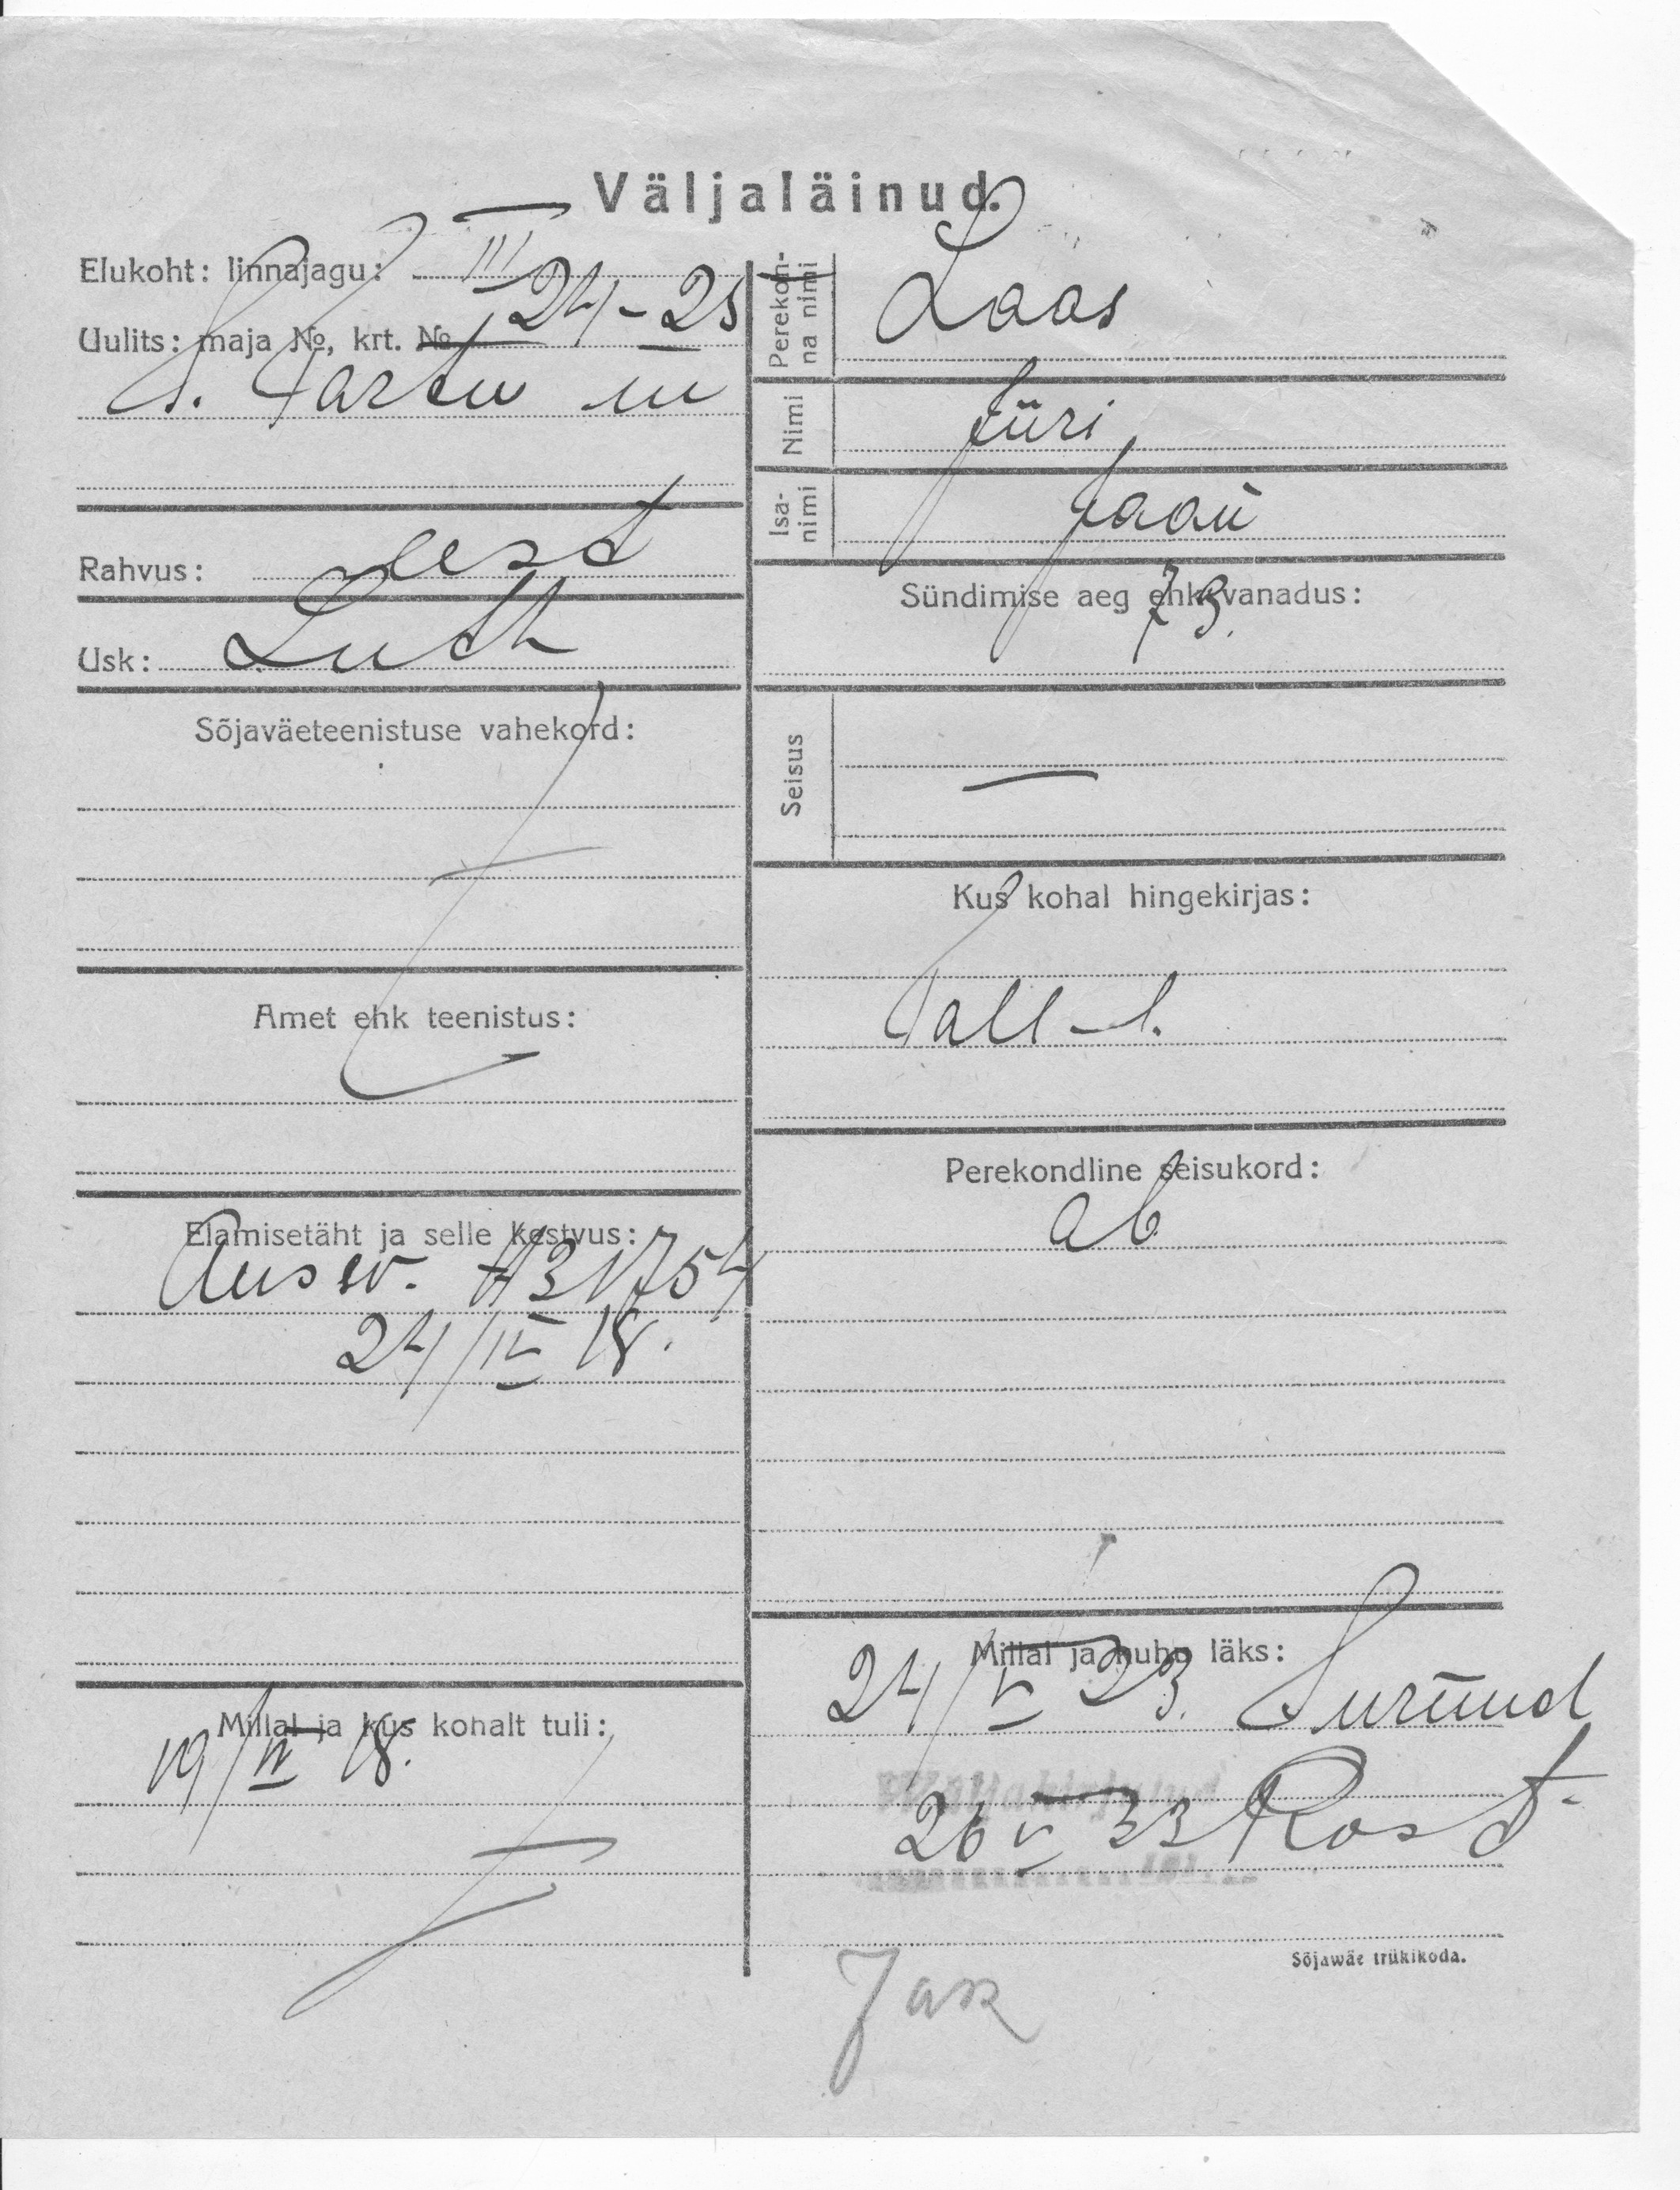 Väljaläinud.
Elukoht: linnajagu: III
Uulits: maja №, krt. № 24-25
S. Tartu m
Rahvus: eest
Usk: Luth
Sõjaväeteenistuse vahekord:
Amet ehk teenistus:
Elamisetäht ja selle kestvus:
Ausw. A31754
24/IV 18.
Millal ja kus kohalt tuli:
19/IV 18.
Perekon-
na nimi
Laas
Nimi
Jüri
Isa-
nimi
Jaan
Sündimise aeg ehk vanadus:
73.
Seisus
—
Kus kohal hingekirjas:
Tall-l.
Perekondline seisukord:
ab
Millal ja kuhu läks:
24/V 23. Surnud
26 V 23 Rost
Sõjawäe trükikoda.